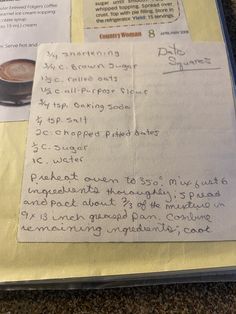 brewed Folgers coffee
caramel ice cream topping
15 mL) cream
Serve hot and
sugar until smooth
whipped topping. Spread over
crust. Top with pie filling. Store in
the refrigerator. Yield: 15 servings.
Country Woman 8
Date
Squares
3/4 shortening
3/4 c. Brown Sugar
1 1/2 c. rolled oats
1 1/2 c all-purpose flour
3/4 tsp. Baking soda
1/4 tsp. salt
2 c. chopped pitted dates
1/2 c. sugar
1 c. water
Preheat oven to 350°. Mix first 6
ingredients thoroughly, spread
and pack about 2/3 of the mixture in
9 x 13 inch greased pan. Combine
remaining ingredients, cook